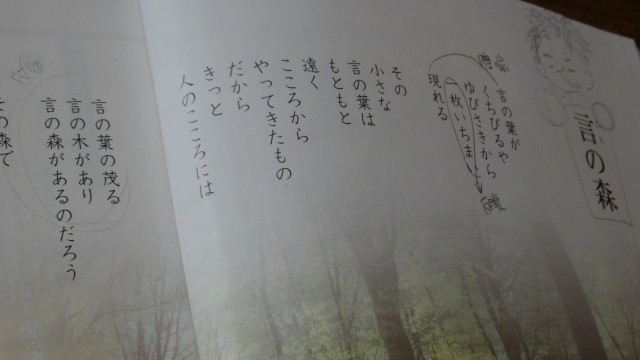 言の森
言の葉が
くちびるや
ゆびさきから
一枚いちまい
現れる
その
小さな
言の葉は
もともと
遠く
こころから
やってきたもの
だから
きっと
人のこころには
言の葉の茂る
言の木があり
言の森があるのだろう
その森で